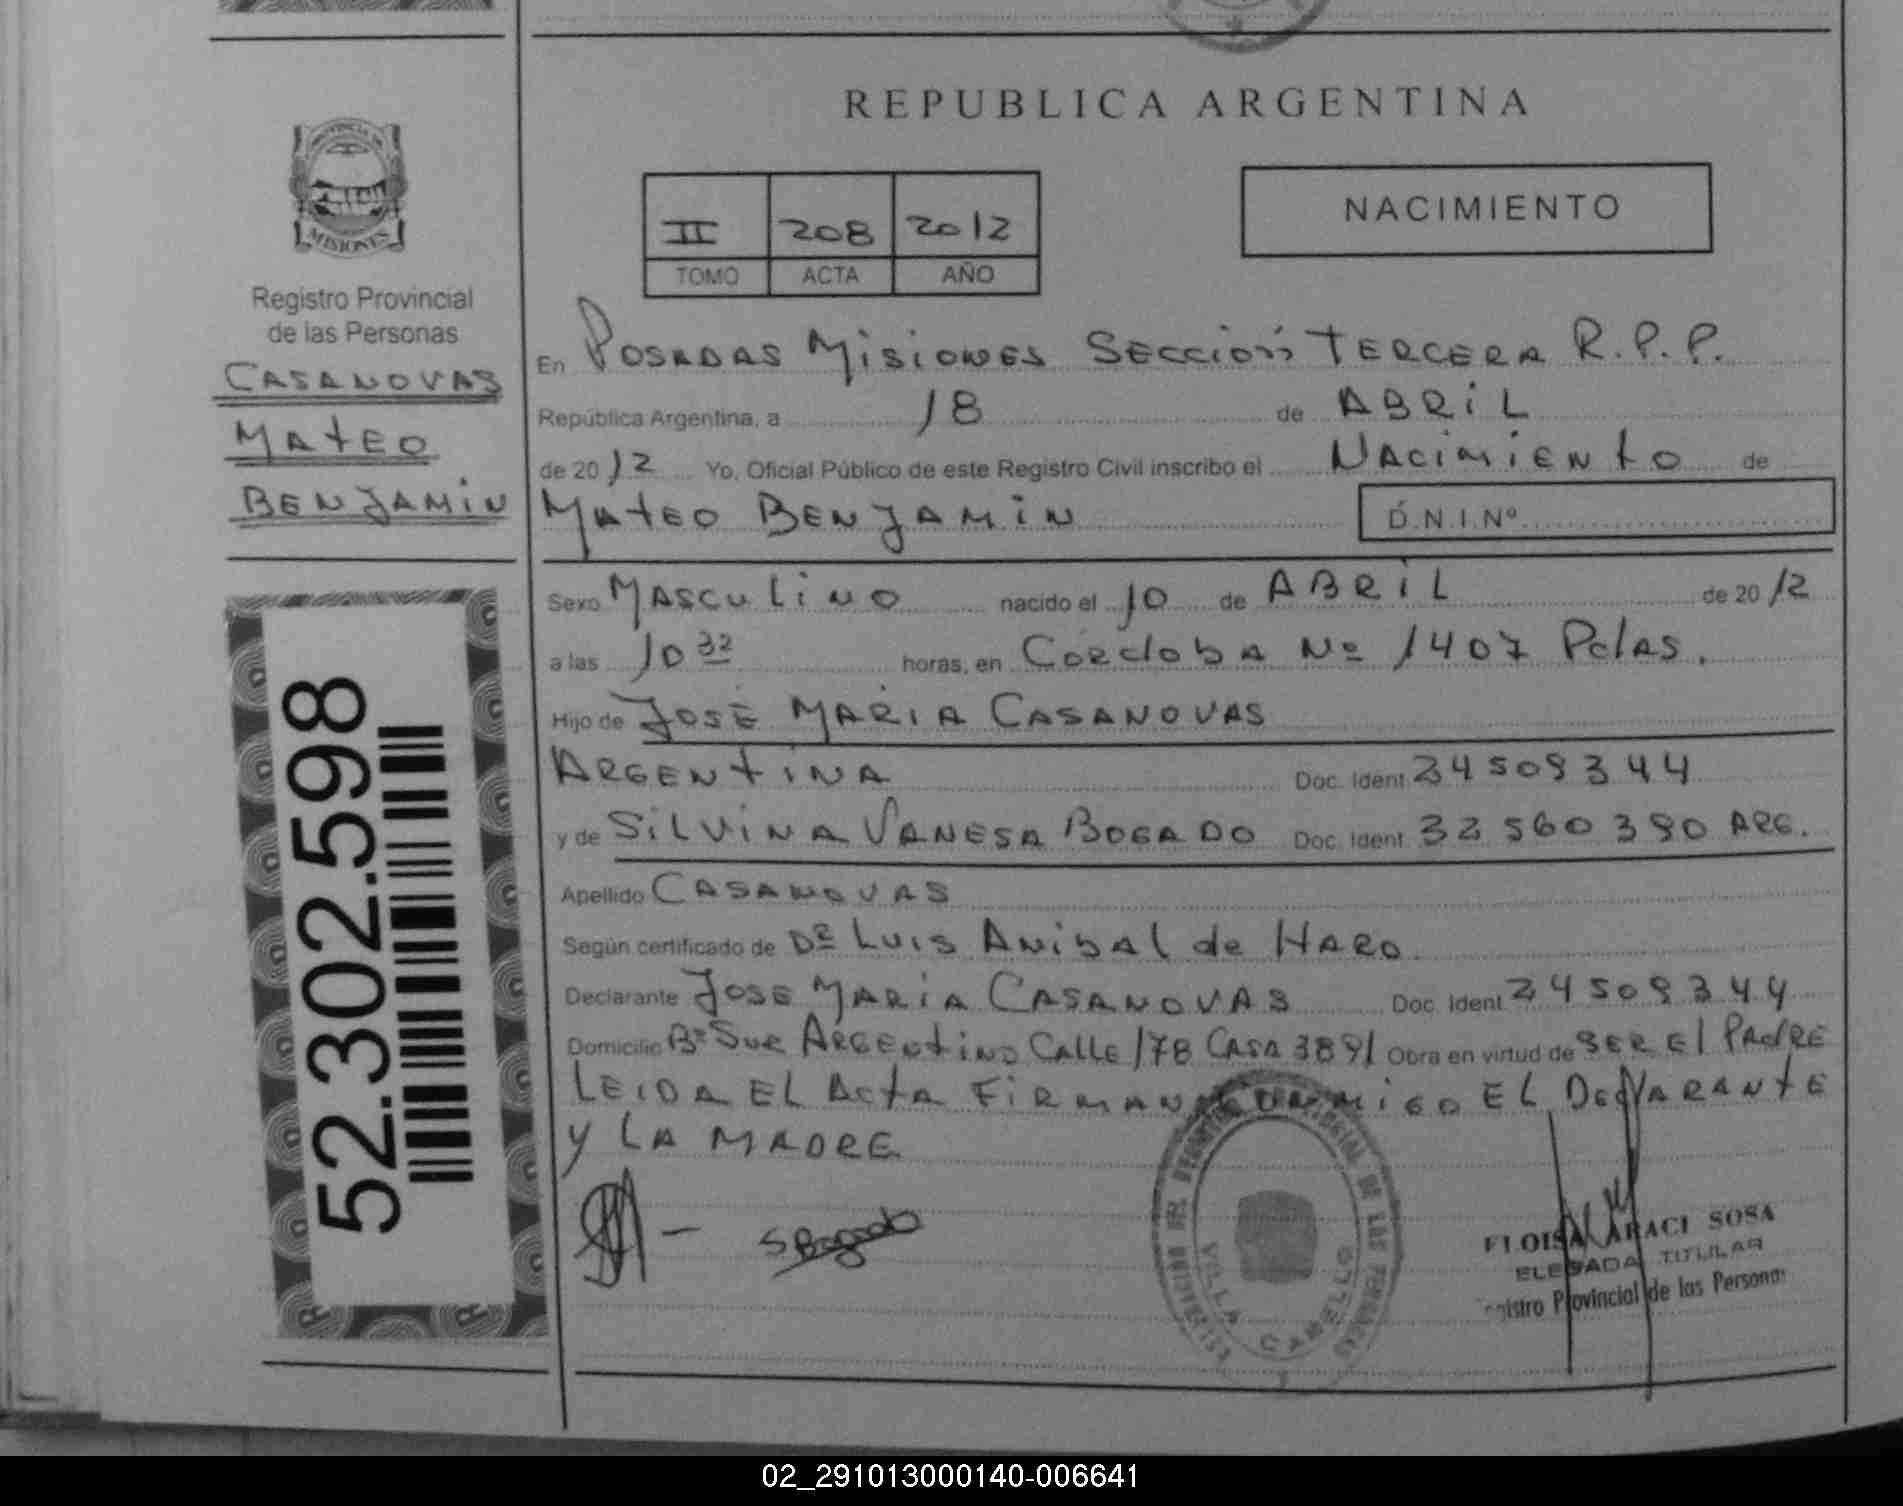 REPUBLICA ARGENTINA
II 208 2012
TOMO ACTA AÑO
NACIMIENTO
PROVINCIA DE
MISIONES
Registro Provincial
de las Personas
CASANOVAS
MATEO
BENJAMIN
52.302.598
En POSADAS MISIONES SECCIÓN TERCERA R.P.P.
República Argentina, a 18 de ABRIL
de 2012 Yo, Oficial Público de este Registro Civil inscribo el NACIMIENTO de
MATEO BENJAMIN D.N.I.Nº
Sexo MASCULINO nacido el 10 de ABRIL de 2012
a las 10 32 horas, en Córdoba Nº 1407 PdAS.
Hijo de JOSÉ MARÍA CASANOVAS
ARGENTINA Doc. Ident. 24509344
y de SILVINA VANESA BOGADO Doc. Ident. 32560390 ARG.
Apellido CASANOVAS
Según certificado de DR LUIS ANIBAL de HARO.
Declarante JOSE MARIA CASANOVAS Doc. Ident. 24509344
Domicilio Bº SUR ARGENTINO CALLE 178 CASA 3891 Obra en virtud de SER El PADRE
LEIDA EL ACTA FIRMAN CONMIGO EL DECLARANTE
Y LA MADRE
S Bogado
VILLA CABELLO
ELOISA ARACI SOSA
ELEGADA TITULAR
Registro Provincial de las Personas
02_291013000140-006641